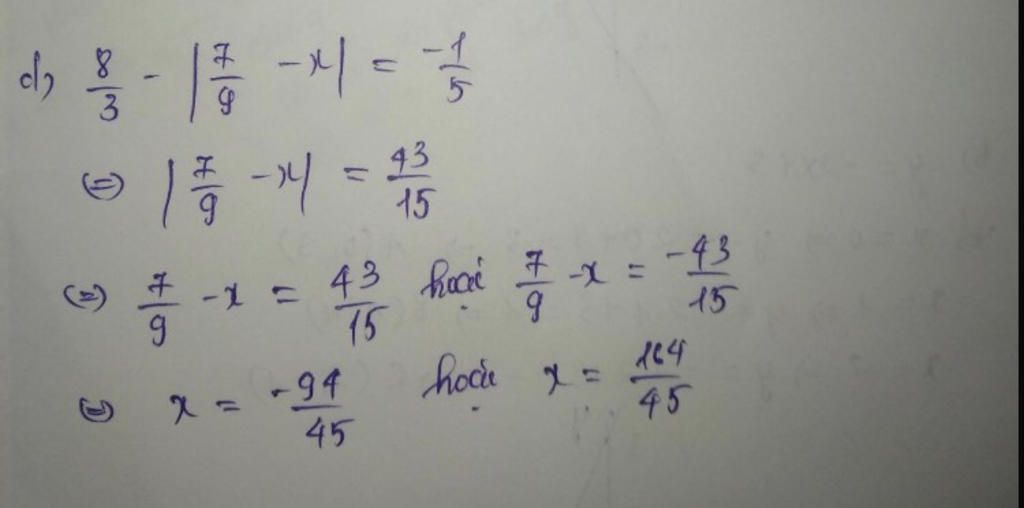 d) 8/3 - |7/9 - x| = -1/5
(=) |7/9 - x| = 43/15
(=) 7/9 - x = 43/15 hoặc 7/9 - x = -43/15
(=) x = -94/45 hoặc x = 164/45